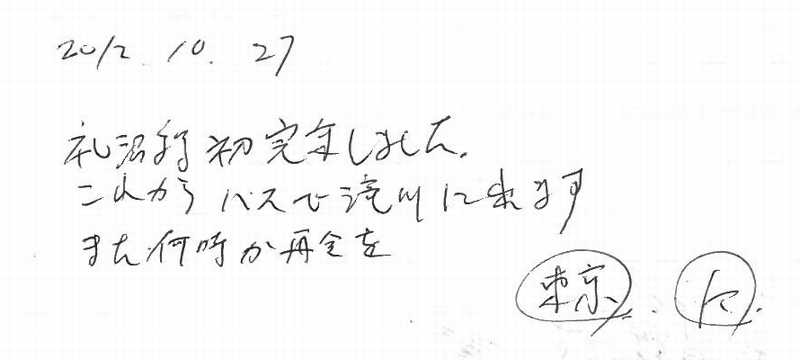 2012. 10. 27
札沼線初完乗しました。
これからバスで滝川に出ます
また何時か再会を
東京.